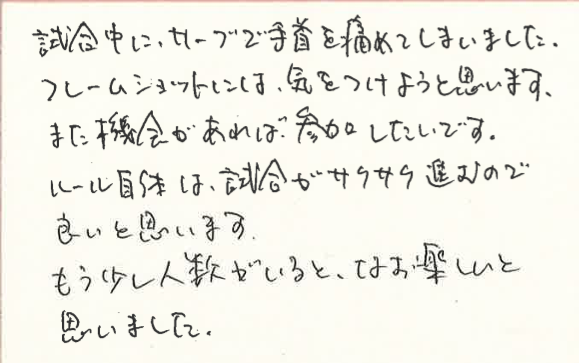 試合中に、サーブで手首を痛めてしまいました.
フレームショットには、気をつけようと思います.
また機会があれば参加したいです。
ルール自体は、試合がサクサク進むので
良いと思います.
もう少し人数がいると、なお楽しいと
思いました.